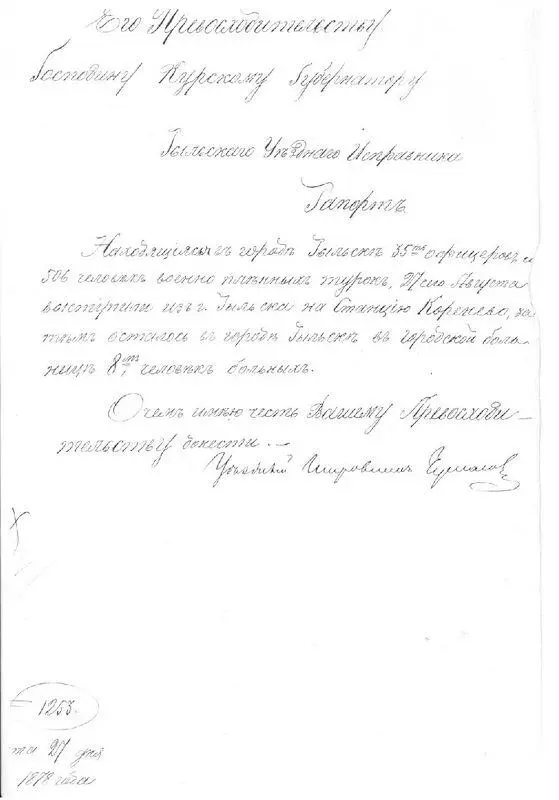 Его Превосходительству
Господину Курскому Губернатору
Рыльскаго Уѣзднаго Исправника
Рапортъ
Находящiяся въ городѣ Рыльскѣ 35ть офицеровъ и
506 человѣкъ военно плѣнныхъ турокъ, 27сего Августа
выступили изъ г. Рыльска на Станцiю Коренево, за
тѣмъ осталось въ городѣ Рыльскѣ въ городской боль-
ницѣ 8м человѣкъ больныхъ.
О чемъ имѣю честь Вашему Превосходи-
тельству донести. —
Уѣздный Исправникъ
1253.
та 27 дня
1878 года